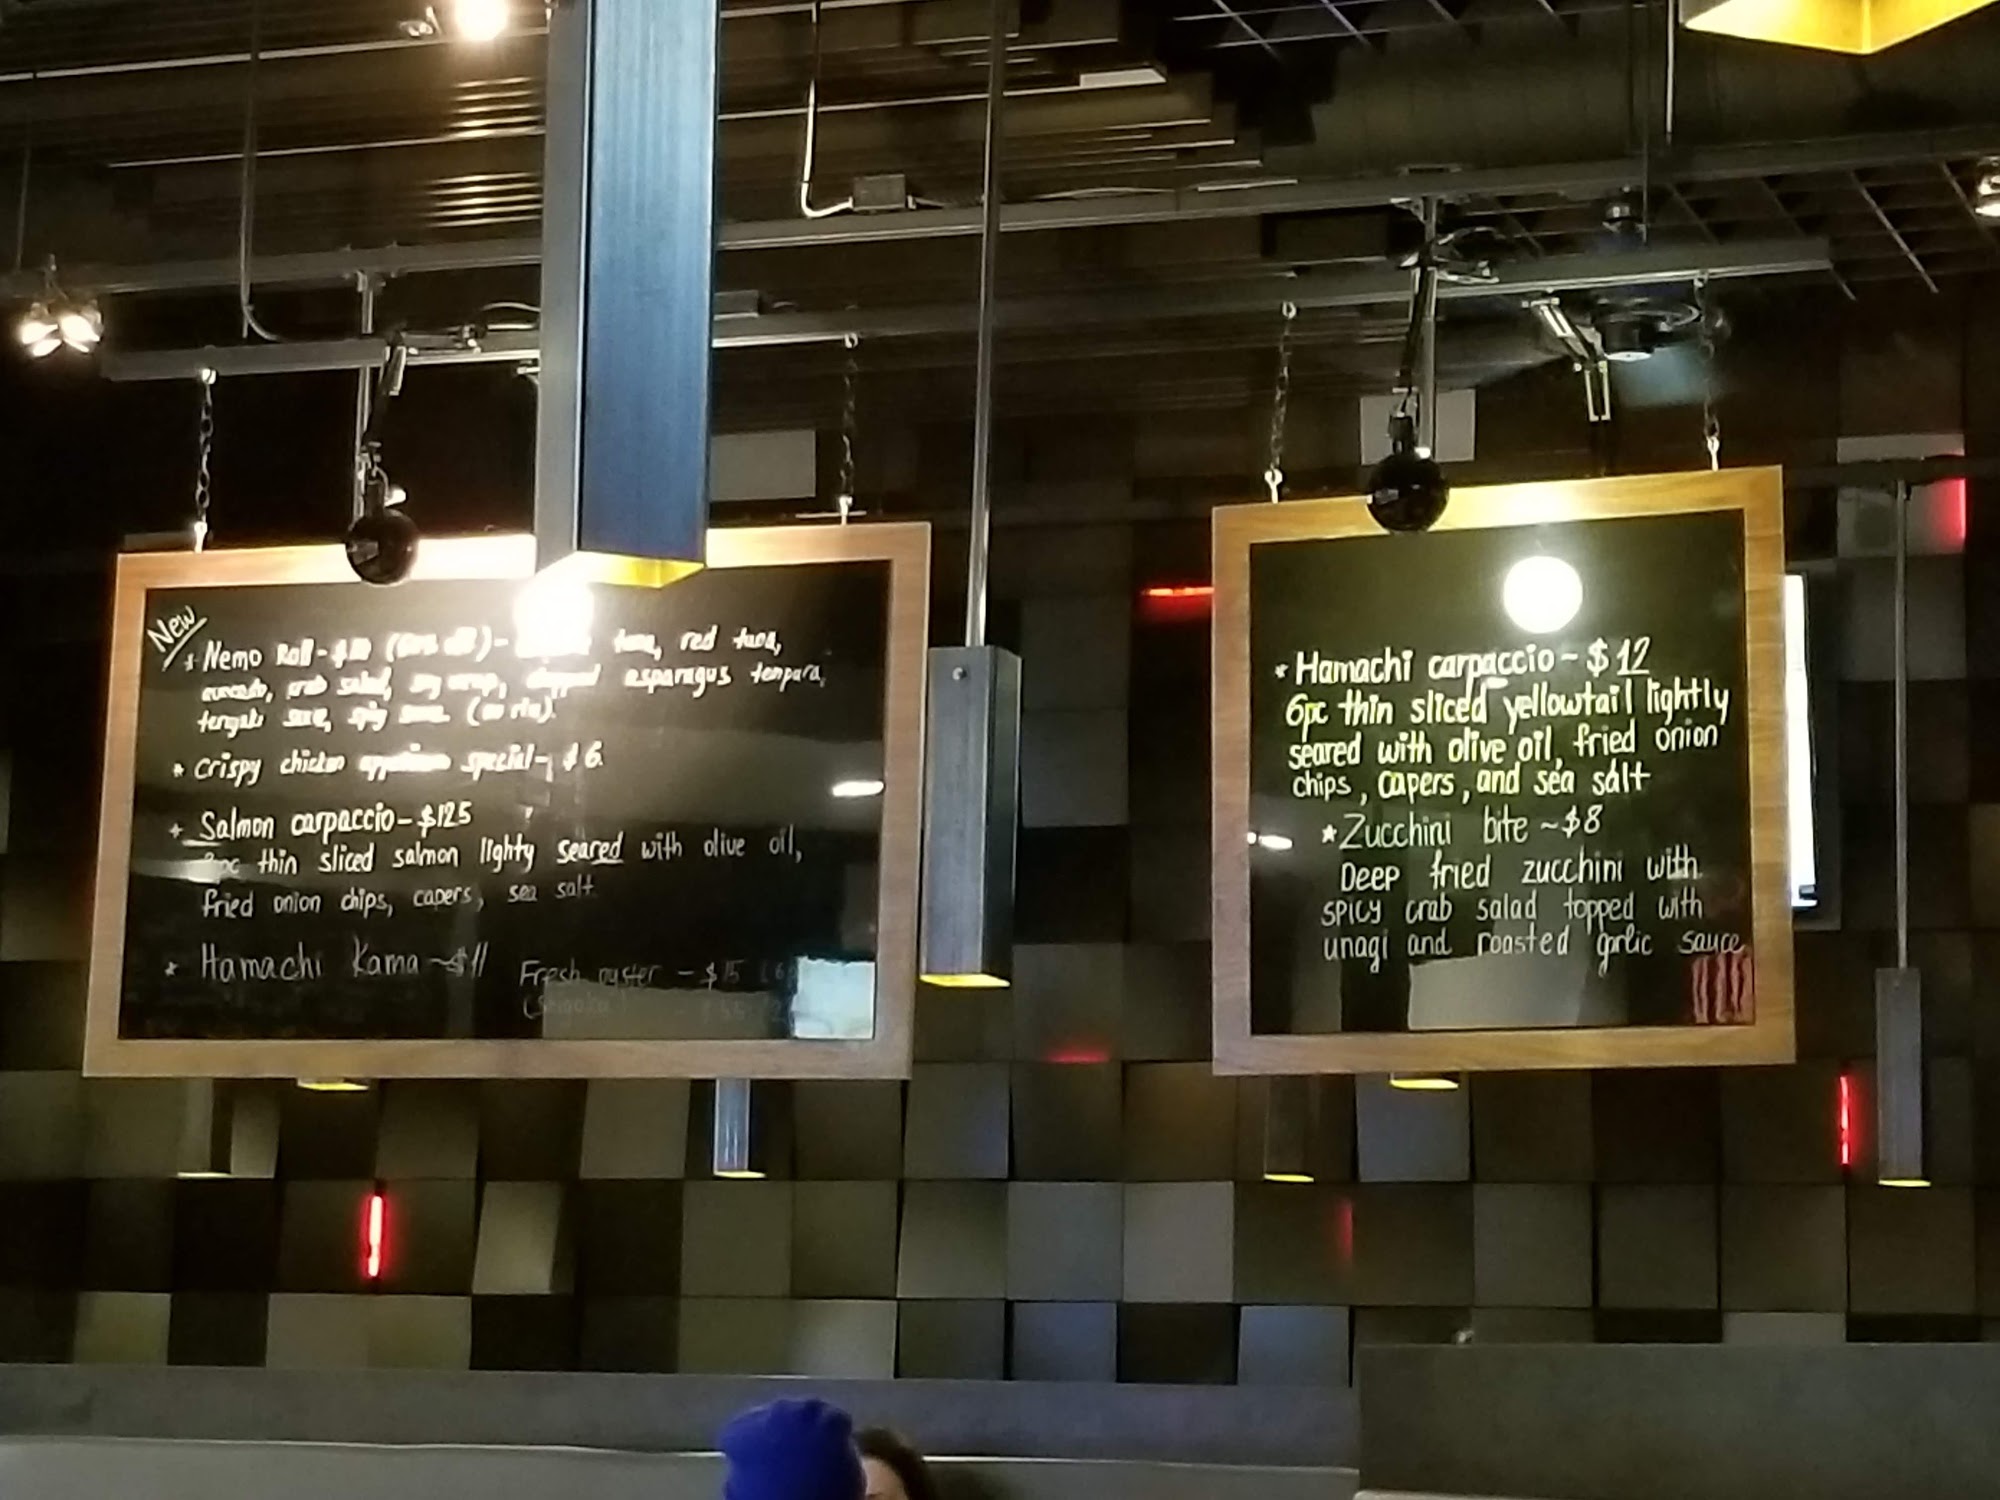 New
* Nemo Roll - tuna, red tuna,
avocado, crab salad, soy wrap, chopped asparagus tempura,
sauce, spicy sauce.
* Crispy chicken special - $6.
* Salmon carpaccio - $125
thin sliced salmon lighty seared with olive oil,
fried onion chips, capers, sea salt
* Hamachi Kama ~ $11
Fresh oyster - $15
* Hamachi carpaccio ~ $12
6pc thin sliced yellowtail lightly
seared with olive oil, fried onion
chips, capers, and sea salt
* Zucchini bite ~ $8
Deep fried zucchini with
spicy crab salad topped with
unagi and roasted garlic sauce